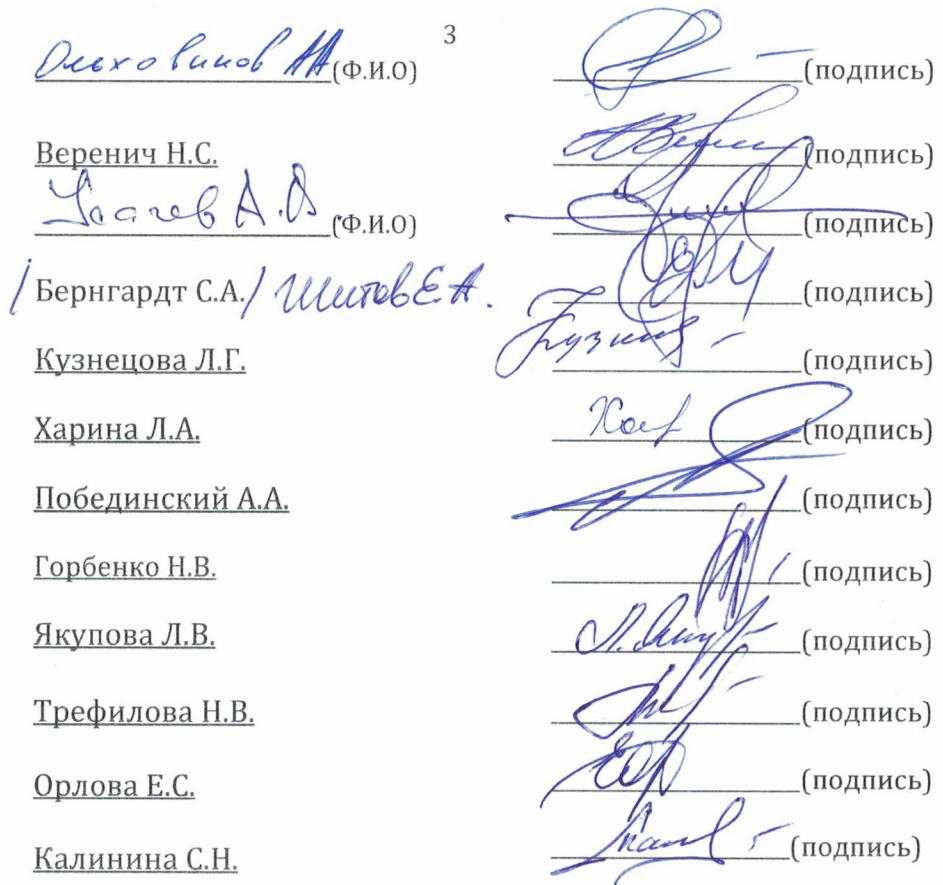 3
Ольховиков АА (Ф.И.О) (подпись)
Веренич Н.С. (подпись)
А.О. (Ф.И.О) (подпись)
/ Бернгардт С.А. / Шитов Е.А. (подпись)
Кузнецова Л.Г. (подпись)
Харина Л.А. Хар (подпись)
Побединский А.А. (подпись)
Горбенко Н.В. (подпись)
Якупова Л.В. (подпись)
Трефилова Н.В. (подпись)
Орлова Е.С. (подпись)
Калинина С.Н. (подпись)